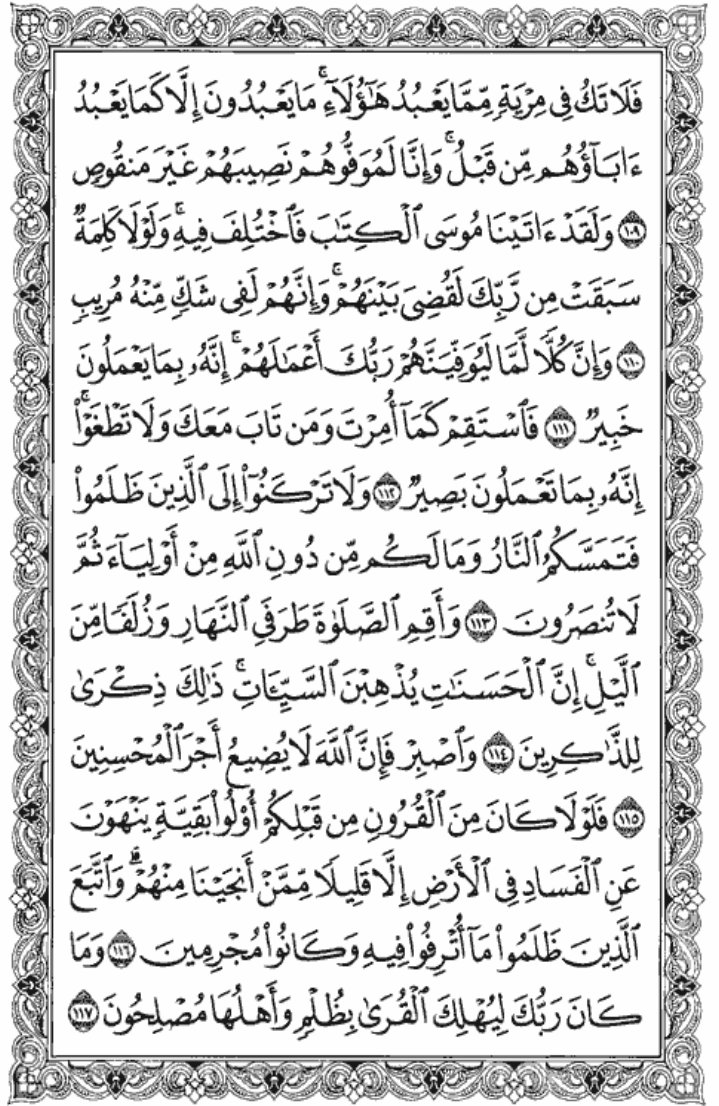 فَلَا تَكُ فِى مِرْيَةٍ مِّمَّا يَعْبُدُ هَٰٓؤُلَآءِ ۚ مَا يَعْبُدُونَ إِلَّا كَمَا يَعْبُدُ
ءَابَآؤُهُم مِّن قَبْلُ ۚ وَإِنَّا لَمُوَفُّوهُمْ نَصِيبَهُمْ غَيْرَ مَنقُوصٍ
١٠٩ وَلَقَدْ ءَاتَيْنَا مُوسَى ٱلْكِتَٰبَ فَٱخْتُلِفَ فِيهِ ۚ وَلَوْلَا كَلِمَةٌ
سَبَقَتْ مِن رَّبِّكَ لَقُضِىَ بَيْنَهُمْ ۚ وَإِنَّهُمْ لَفِى شَكٍّ مِّنْهُ مُرِيبٍ
١١٠ وَإِنَّ كُلًّا لَّمَّا لَيُوَفِّيَنَّهُمْ رَبُّكَ أَعْمَٰلَهُمْ ۚ إِنَّهُۥ بِمَا يَعْمَلُونَ
خَبِيرٌ ١١١ فَٱسْتَقِمْ كَمَآ أُمِرْتَ وَمَن تَابَ مَعَكَ وَلَا تَطْغَوْا۟ ۚ
إِنَّهُۥ بِمَا تَعْمَلُونَ بَصِيرٌ ١١٢ وَلَا تَرْكَنُوٓا۟ إِلَى ٱلَّذِينَ ظَلَمُوا۟
فَتَمَسَّكُمُ ٱلنَّارُ وَمَا لَكُم مِّن دُونِ ٱللَّهِ مِنْ أَوْلِيَآءَ ثُمَّ
لَا تُنصَرُونَ ١١٣ وَأَقِمِ ٱلصَّلَوٰةَ طَرَفَىِ ٱلنَّهَارِ وَزُلَفًا مِّنَ
ٱلَّيْلِ ۚ إِنَّ ٱلْحَسَنَٰتِ يُذْهِبْنَ ٱلسَّيِّـَٔاتِ ۚ ذَٰلِكَ ذِكْرَىٰ
لِلذَّٰكِرِينَ ١١٤ وَٱصْبِرْ فَإِنَّ ٱللَّهَ لَا يُضِيعُ أَجْرَ ٱلْمُحْسِنِينَ
١١٥ فَلَوْلَا كَانَ مِنَ ٱلْقُرُونِ مِن قَبْلِكُمْ أُو۟لُوا۟ بَقِيَّةٍ يَنْهَوْنَ
عَنِ ٱلْفَسَادِ فِى ٱلْأَرْضِ إِلَّا قَلِيلًا مِّمَّنْ أَنجَيْنَا مِنْهُمْ ۗ وَٱتَّبَعَ
ٱلَّذِينَ ظَلَمُوا۟ مَآ أُتْرِفُوا۟ فِيهِ وَكَانُوا۟ مُجْرِمِينَ ١١٦ وَمَا
كَانَ رَبُّكَ لِيُهْلِكَ ٱلْقُرَىٰ بِظُلْمٍ وَأَهْلُهَا مُصْلِحُونَ ١١٧